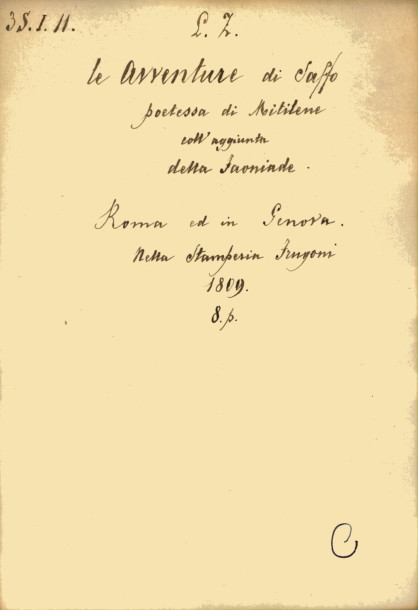 35.I.11.
L. Z.
le Avventure di Saffo
poetessa di Mitilene
coll' aggiunta
della Faoniade.
Roma ed in Genova.
Nella Stamperia Frugoni
1809.
8. p.
C